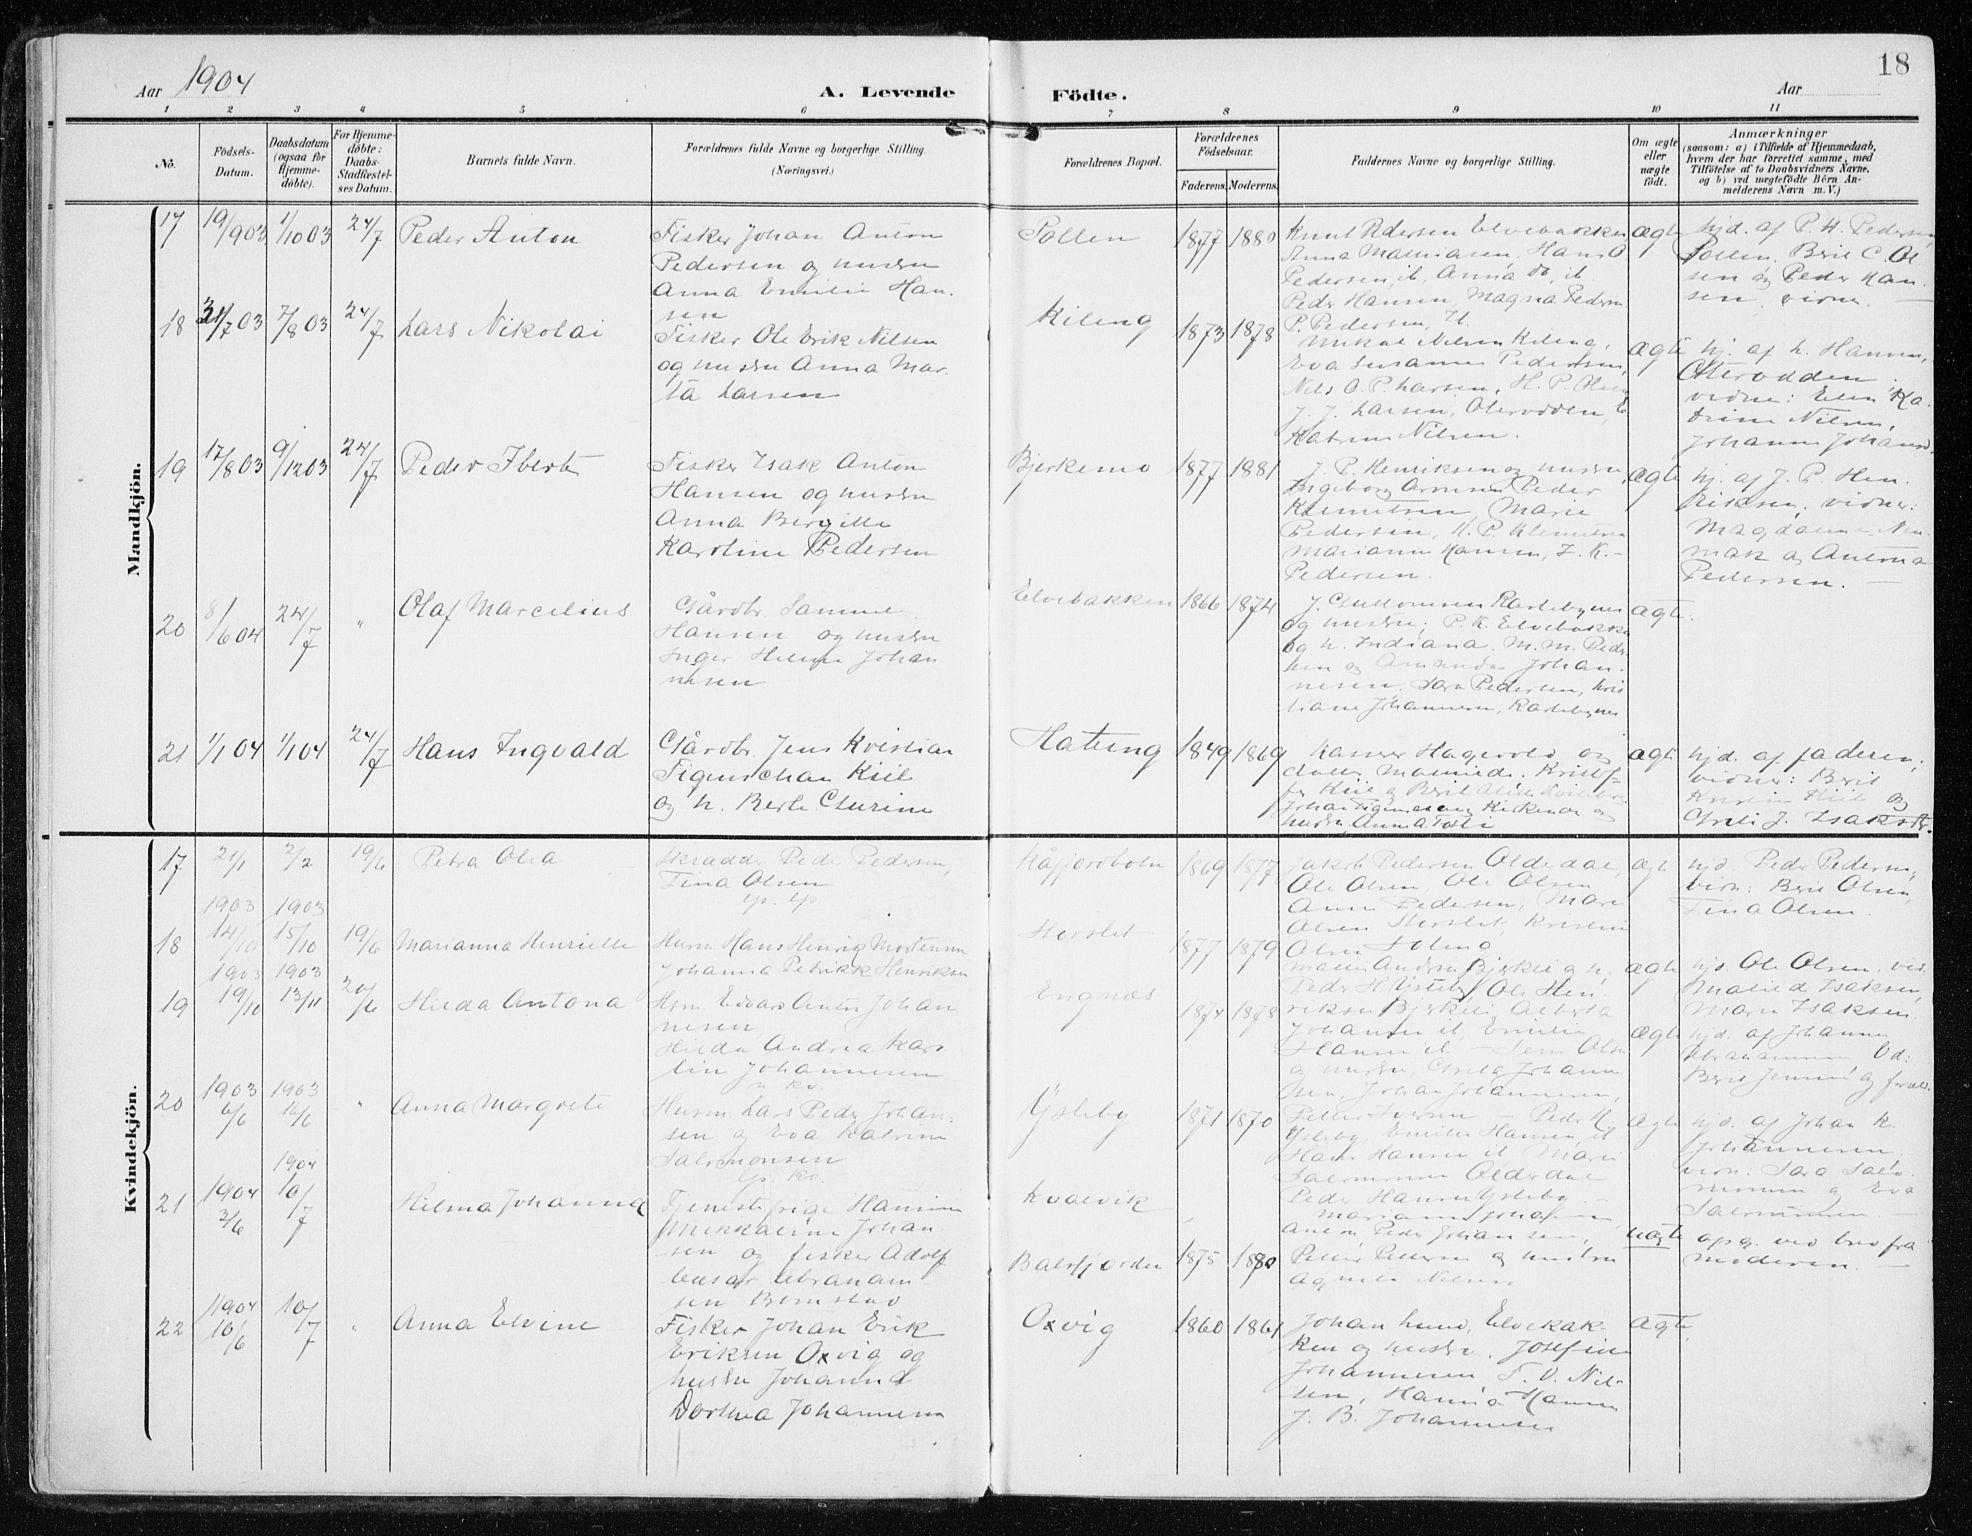 18
Aar 1904
A. Levende
Födte.
Aar
1 2 3 4 5 6 7 8 9 10 11
No.
Födsels-
Datum.
Daabsdatum
(ogsaa for
Hjemme-
döbte).
For Hjemme-
döbte:
Daabs-
Stadfæstel-
ses Datum.
Barnets fulde Navn.
Forældrenes fulde Navne og borgerlige Stilling.
(Næringsvei.)
Forældrenes Bopæl.
Forældrenes
Födselsaar.
Faderens. Moderens.
Faddernes Navne og borgerlige Stilling.
Om ægte
eller
uægte
födt.
Anmærkninger
(saasom: a) i Tilfælde af Hjemmedaab,
hvem der har forrettet samme, med
Tilföielse af to Daabsvidners Navne,
og b) ved uægtefödte Börn An-
melderens Navn m. V.)
Mandkjön.
17
19/9 03
1/10 03
24/7
Peder Anton
Fisker Johan Anton
Pedersen og hustru
Anna Emilie Han-
sen
Pollen
1877 1880
Knut Pedersen Elvebakken
Anna Mathiasen, Hans O
Pedersen, it, Anna do, it
Peder Hansen, Magna Peders
P. Pedersen, it.
ægte
hjd. af P. H. Pedersen
Pollen. Berit C. Ol
sen og Peder Han-
sen, vidner. —
18
31/7 03
7/8 03
24/7
Lars Nikolai
Fisker Ole Erik Nilsen
og hustru Anna Mar-
ta Larsen
Kileng
1873 1878
Mikal Nilsen Kileng,
Eva Susanna Pedersen,
Nils O. P. Larsen, H. P. Olsen
J. J. Larsen, Oterodden, E
Katrine Nilsen.
ægte
hj. af L. Hansen,
Oterodden
vidne: Elen Ka-
trine Nilsen,
Johanna Johans
19
17/8 03
9/12 03
24/7
Peder Ibert
Fisker Isak Anton
Hansen og hustru
Anna Bergitte
Karoline Pedersen
Bjerkemo
1877 1881
J. P. Henriksen og hustru
Ingeborg Arnesen, Peder
Klemetsen, Marie
Pedersen, H. P. Klemetsen
Marianne Hansen, I. K.
Pedersen.
ægte
hj. af J. P. Hen-
riksen, vidner:
Magdalena
og Antona
Pedersen. —
20
8/6 04
24/7
"
Olaf Marcelius
Gårdbr. Samuel
Hansen og hustru
Inger Helene Johan
nesen
Elvebakken
1866 1874
J. Guttormsen
og hustru; P. K. Elvebakke
og h. Indiana. M. M. Peder
sen og Amanda Johan-
nesen. Sara Pedersen, Kris
tiane Johannesen,
ægte.
21
1/1 04
1/1 04
24/7
Hans Ingvald
Gårdbr. Jens Kristian
Figenschau Kiil
og h. Berte Gurine
Hateng
1849 1869
Hagevold og
datter Mathilde. Kristof-
fer Kiil og Berit
Johan Figenschau og
hustru Anna
ægte
hjd. af faderen,
vidner: Berit
Kristin Kiil og
J. Isaksdtr.
Kvindekjön.
17
21/1
2/2
19/6
Petra Olea
Skrædder Peder Pedersen,
Tina Olsen
Kåfjordbotn
1869 1877
Jakob Pedersen Olderdal,
Ole Olsen, Ole Olsen
Anne Pedersen, Marie
Olsen Storslet, Kristine
Olsen
ægte
hjd. Peder Pedersen,
vidn: Berit Olsen,
Tina Olsen.
18
1903 14/10
1903 15/10
19/6
Marianna Henriette
Husm. Hans Henrik Mortensen
Johanna Petrikke Henriksen
Storslet
1877 1879
Anders Bjerkli og h.
Peder H. Ysteby, Ole Hen
riksen Bjerkli, Alberta
Johansen it, Emilie
Hansen it
ægte
hjd. Ole Olsen, vid.
Mathilde Isaksen,
Marie Isaksen.
19
1903 19/10
1903 13/11
20/6
Hilda Antona
Husm. Edvard Anton Johan
nesen,
Hilda Andrea Karo
lin Johannesen
Engnæs
1874 1878
— Jens Olsen
og hustru, Johann
sen, Johan Johannesen,
Iversen
ægte
hjd. af Johannes
Abrahamsen Vd:
Berit Jensen og foræld.
20
1903 6/6
1903 16/6
"
Anna Margrete
Husm. Lars Peder Johan-
sen og Eva Katrine
Salomonsen
Ysteby
1871 1870
— Peder H.
Ysteby, Emilie Hansen, it
Hans Hansen it Marie
Salomonsen Olderdal
Peder Hansen Ysteby. —
ægte
hjd. af Johan K.
Johannesen,
vidn: Sara Salo-
monsen og Eva
Salomonsen. —
21
1904 3/6
1904 10/7
Hilma Johanna
Tjenestepige Hansine
Mikkaline Johan
sen og fisker Adolf
Cæsar Abraham
sen Bomstad
Kvalvik
Balsfjorden
1875 1880
Mariane Johansen,
Anton, Peder Johansen,
Petter Pettersen og hustru
Agnete Nilsen
uægte
opg. ved brev fra
moderen. —
22
1904 10/6
10/7
"
Anna Elvine
Fisker Johan Erik
Eriksen Oxvig og
hustru Johanna
Dorthea Johannesen
Oxvig
1860 1861
Johan Lund, Elvebak-
ken og hustru. Josefine
Johannesen T. O. Nil-
sen, Hanna Hansen
J. B. Johannesen
ægte.